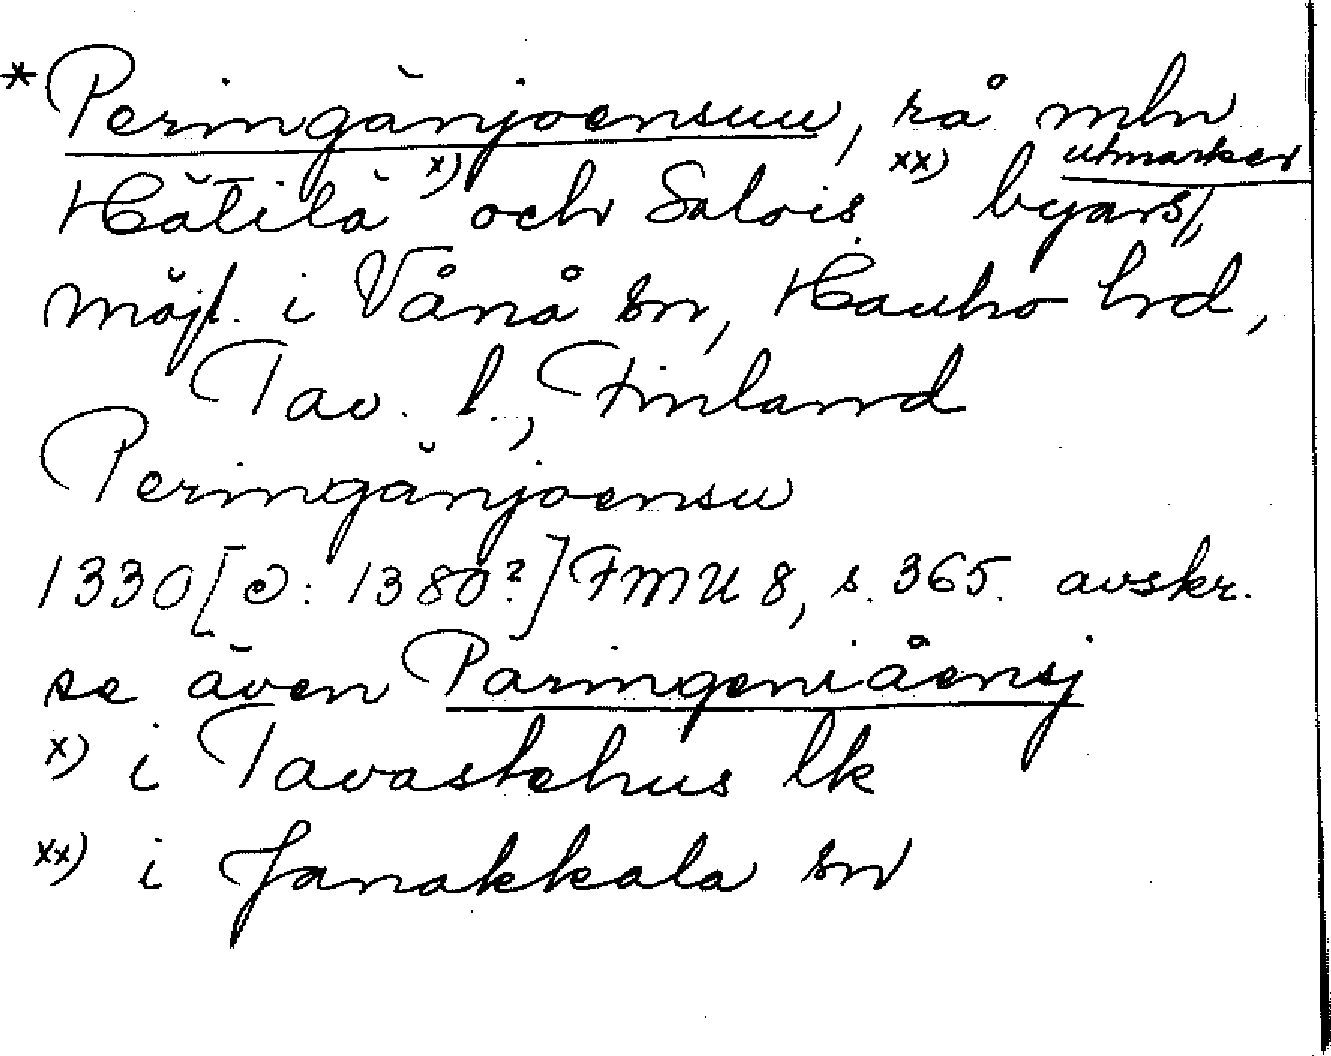 *Peringänjoensuu, rå mln
Hätilä x) och Salois xx) byars utmarker,
möjl. i Vånå sn, Hauho hrd,
Tav. l., Finland
Peringänjoensu
1330 [ɔ: 1380?] FMU 8, s. 365. avskr.
se även Paringeniåensj
x) i Tavastehus lk
xx) i Janakkala sn